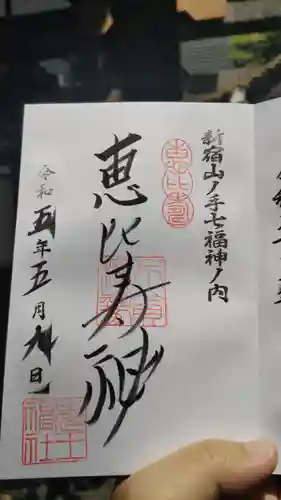 新宿山ノ手七福神ノ内
恵比寿
恵比寿神
令和五年五月九日